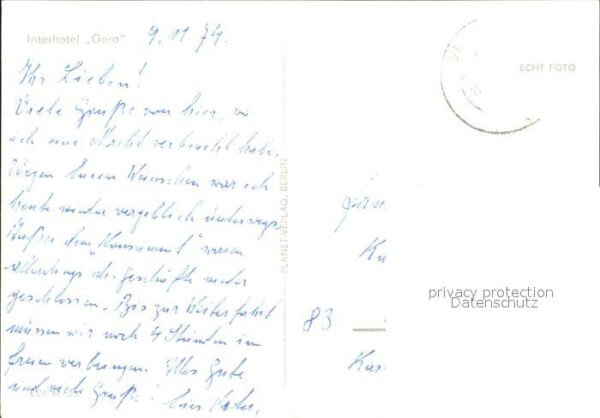 Interhotel „Gera"
9.11.74.
Ihr Lieben!
Viele Grüße von hier, wo
ich eine Nacht verbracht habe.
Wegen Euren Wünschen war ich
heute wieder vergeblich unterwegs.
Außer dem "Konsument" waren
allerdings die Geschäfte wieder
geschlossen. Bis zur Weiterfahrt
müssen wir noch 4 Stunden im
freien verbringen. Alles Gute
und viele Grüße! Euer
PLANET-VERLAG, BERLIN
ECHT FOTO
Fam
83
privacy protection
Datenschutz